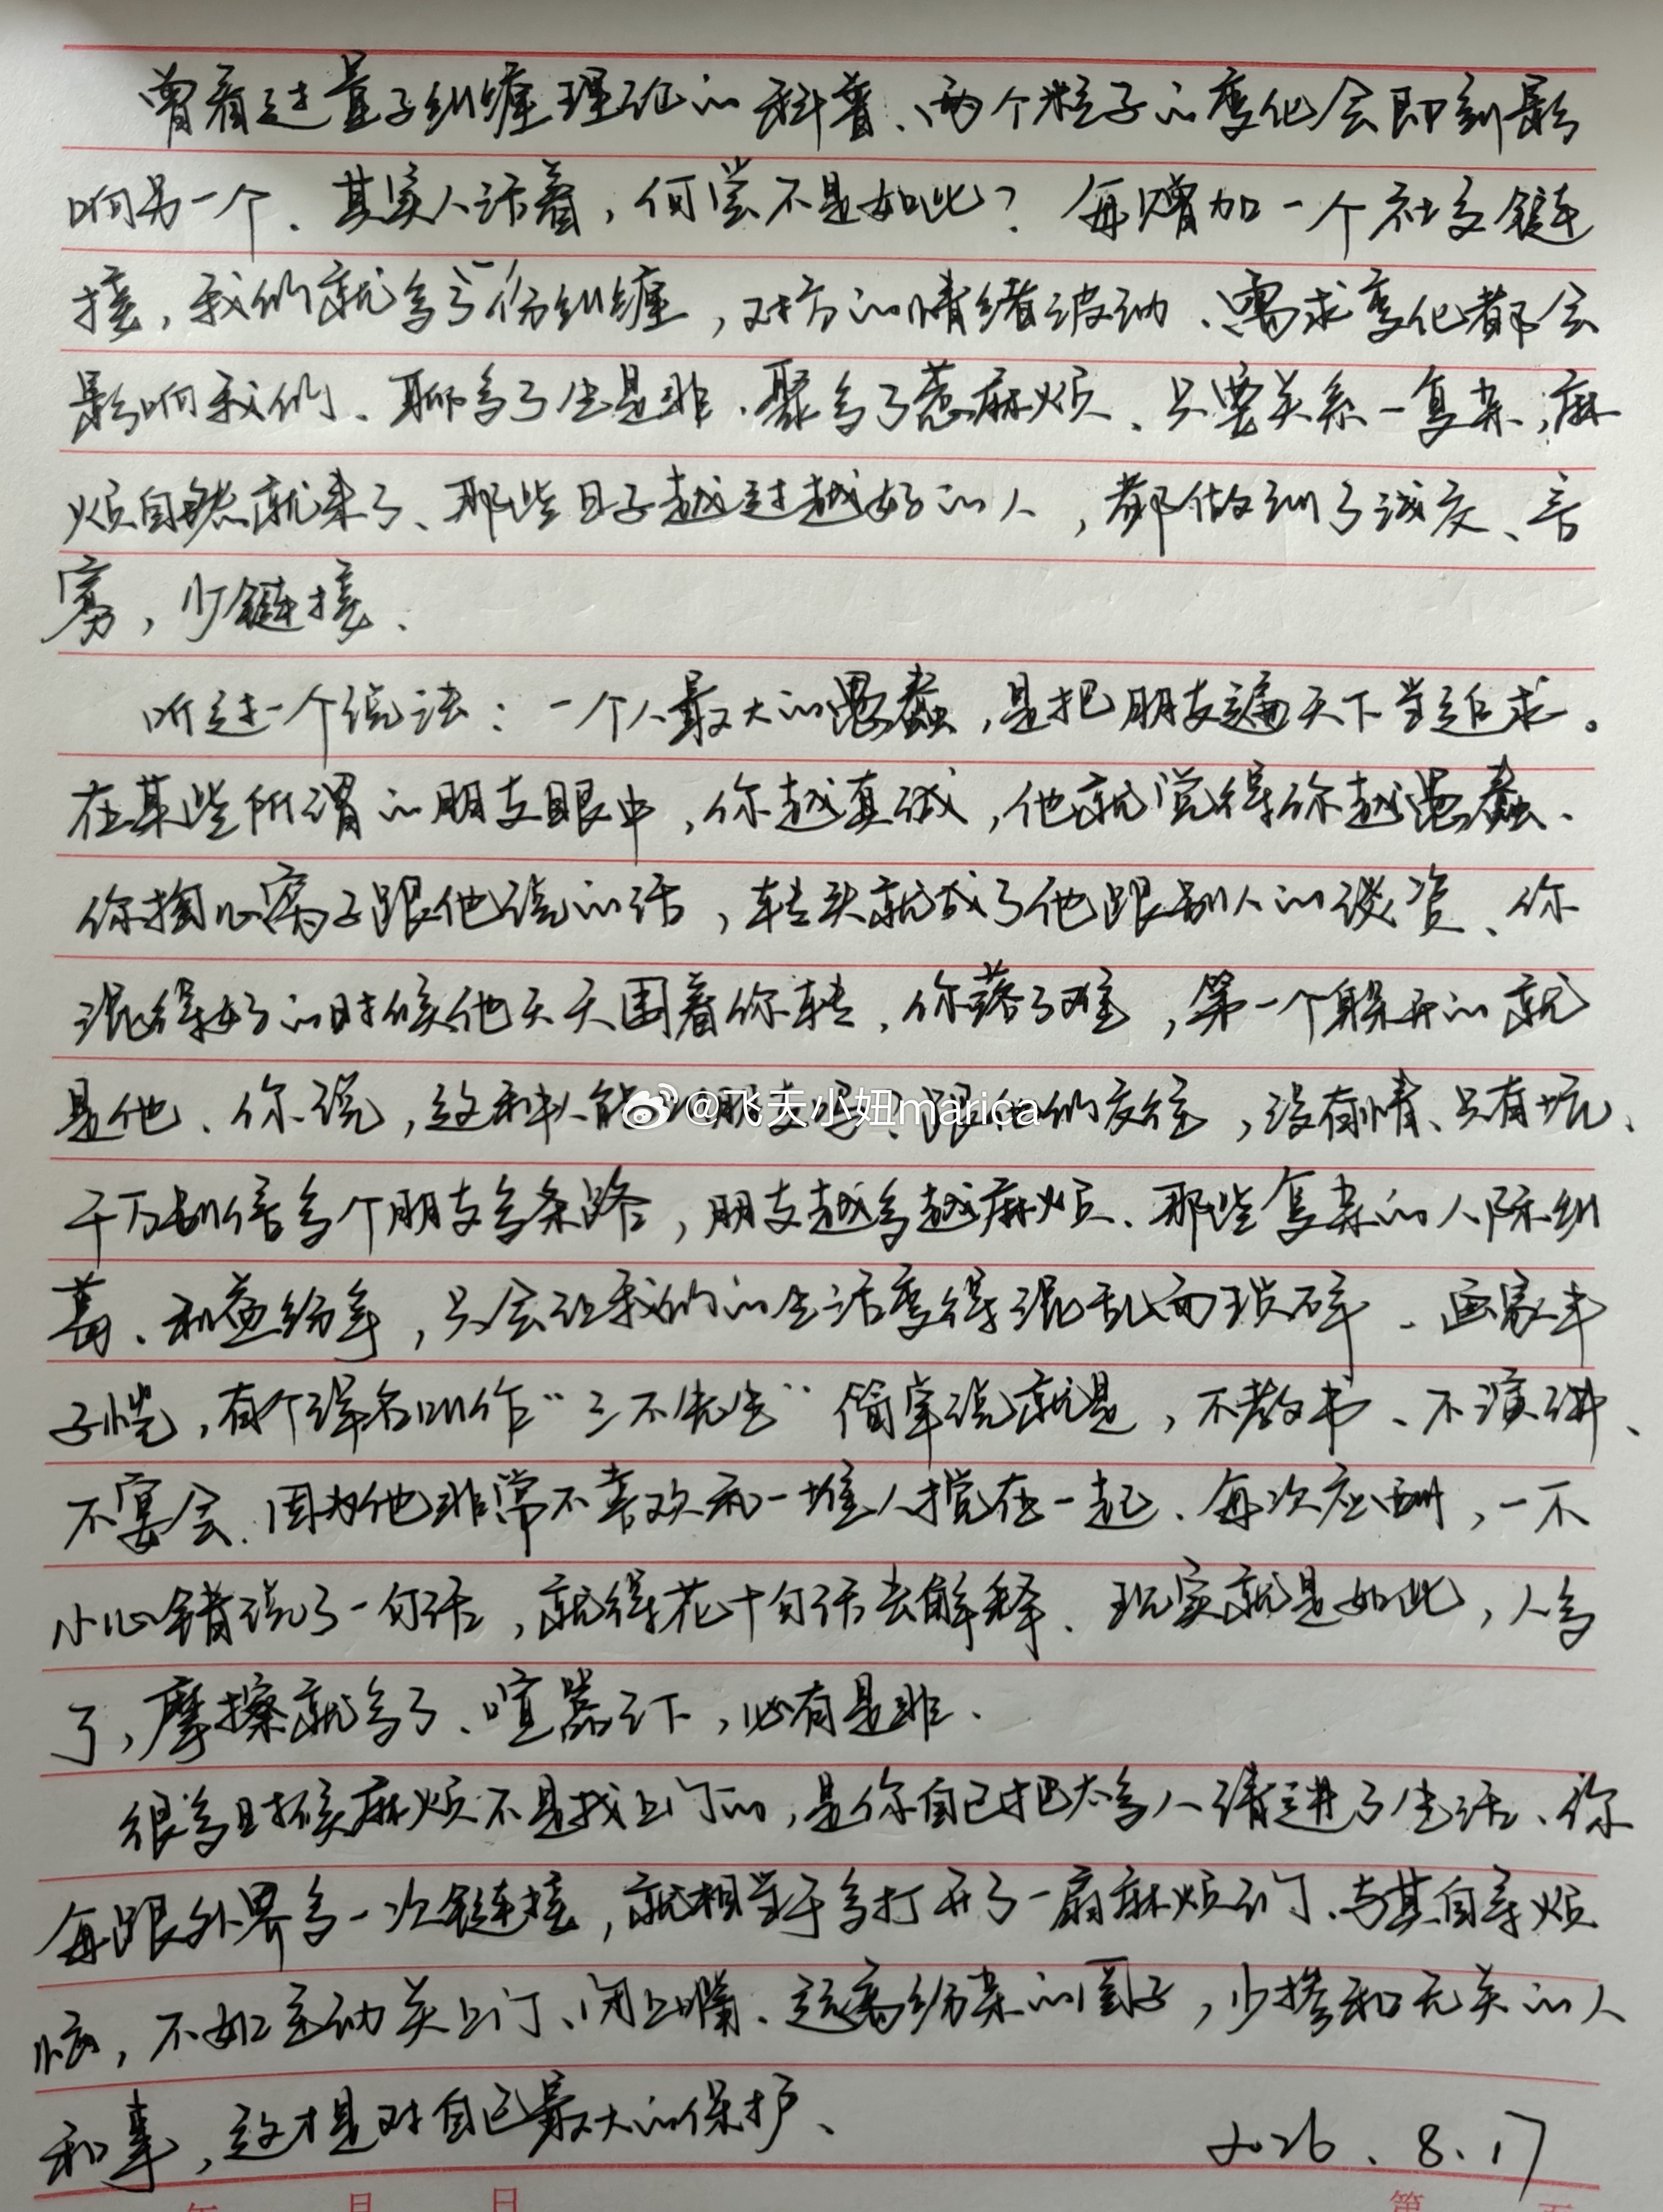 曾看过量子纠缠理论的科普、两个粒子的变化会即刻影
响另一个、其实人活着，何尝不是如此？每增加一个社交链
接，我们就多了一份纠缠，对方的情绪波动、需求变化都会
影响我们、聊多了生是非、聚多了惹麻烦、只要关系一复杂，麻
烦自然就来了、那些日子越过越好的人，都做到了减友、
，少链接、
听过一个说法：一个人最大的愚蠢，是把朋友遍天下当追求。
在某些所谓的朋友眼中，你越真诚，他就觉得你越愚蠢、
你掏心窝子跟他说的话，转头就成了他跟别人的谈资、你
混得好的时候他天天围着你转，你落了难，第一个躲开的就
是他、你说，这种人能 朋友吗？跟他们交往，没有情、只有坑、
千万别信多个朋友多条路，朋友越多越麻烦、那些复杂的人际纠
葛、利益纷争，只会让我们的生活变得混乱而琐碎、画家丰
子恺，有个绰名叫作“三不先生”简单说就是，不教书、不演讲、
不宴会、因为他非常不喜欢和一堆人搅在一起、每次应酬，一不
小心错说了一句话，就得花十句话去解释、现实就是如此，人多
了，摩擦就多了、喧嚣之下，必有是非、
很多时候麻烦不是找上门的，是你自己把太多人请进了生活、你
每跟外界多一次链接，就相当于多打开了一扇麻烦之门、与其自寻烦
恼，不如主动关上门、闭上嘴、远离纷杂的圈子，少掺和无关的人
和事，这才是对自己最大的保护、
2026.8.17
@飞天小妞marica
年 月 日 第 页